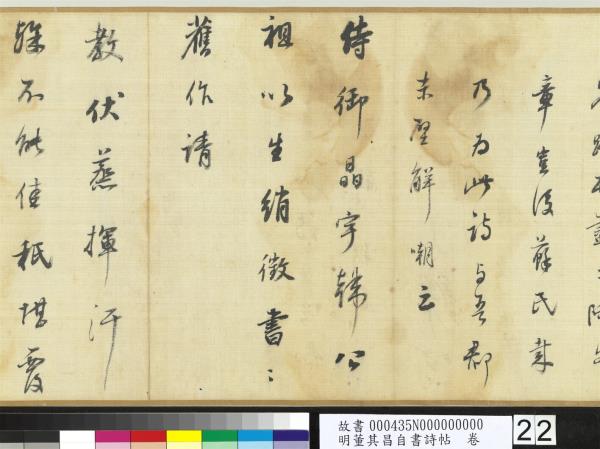 章豈後蘇氏
乃為此詩與吾郡
解嘲云
侍御晶宇韓公
祖以生綃徵書〻
舊作請
教伏蒸揮汗
殊不能佳秖堪覆
故書 000435N000000000
明董其昌自書詩帖 卷
22